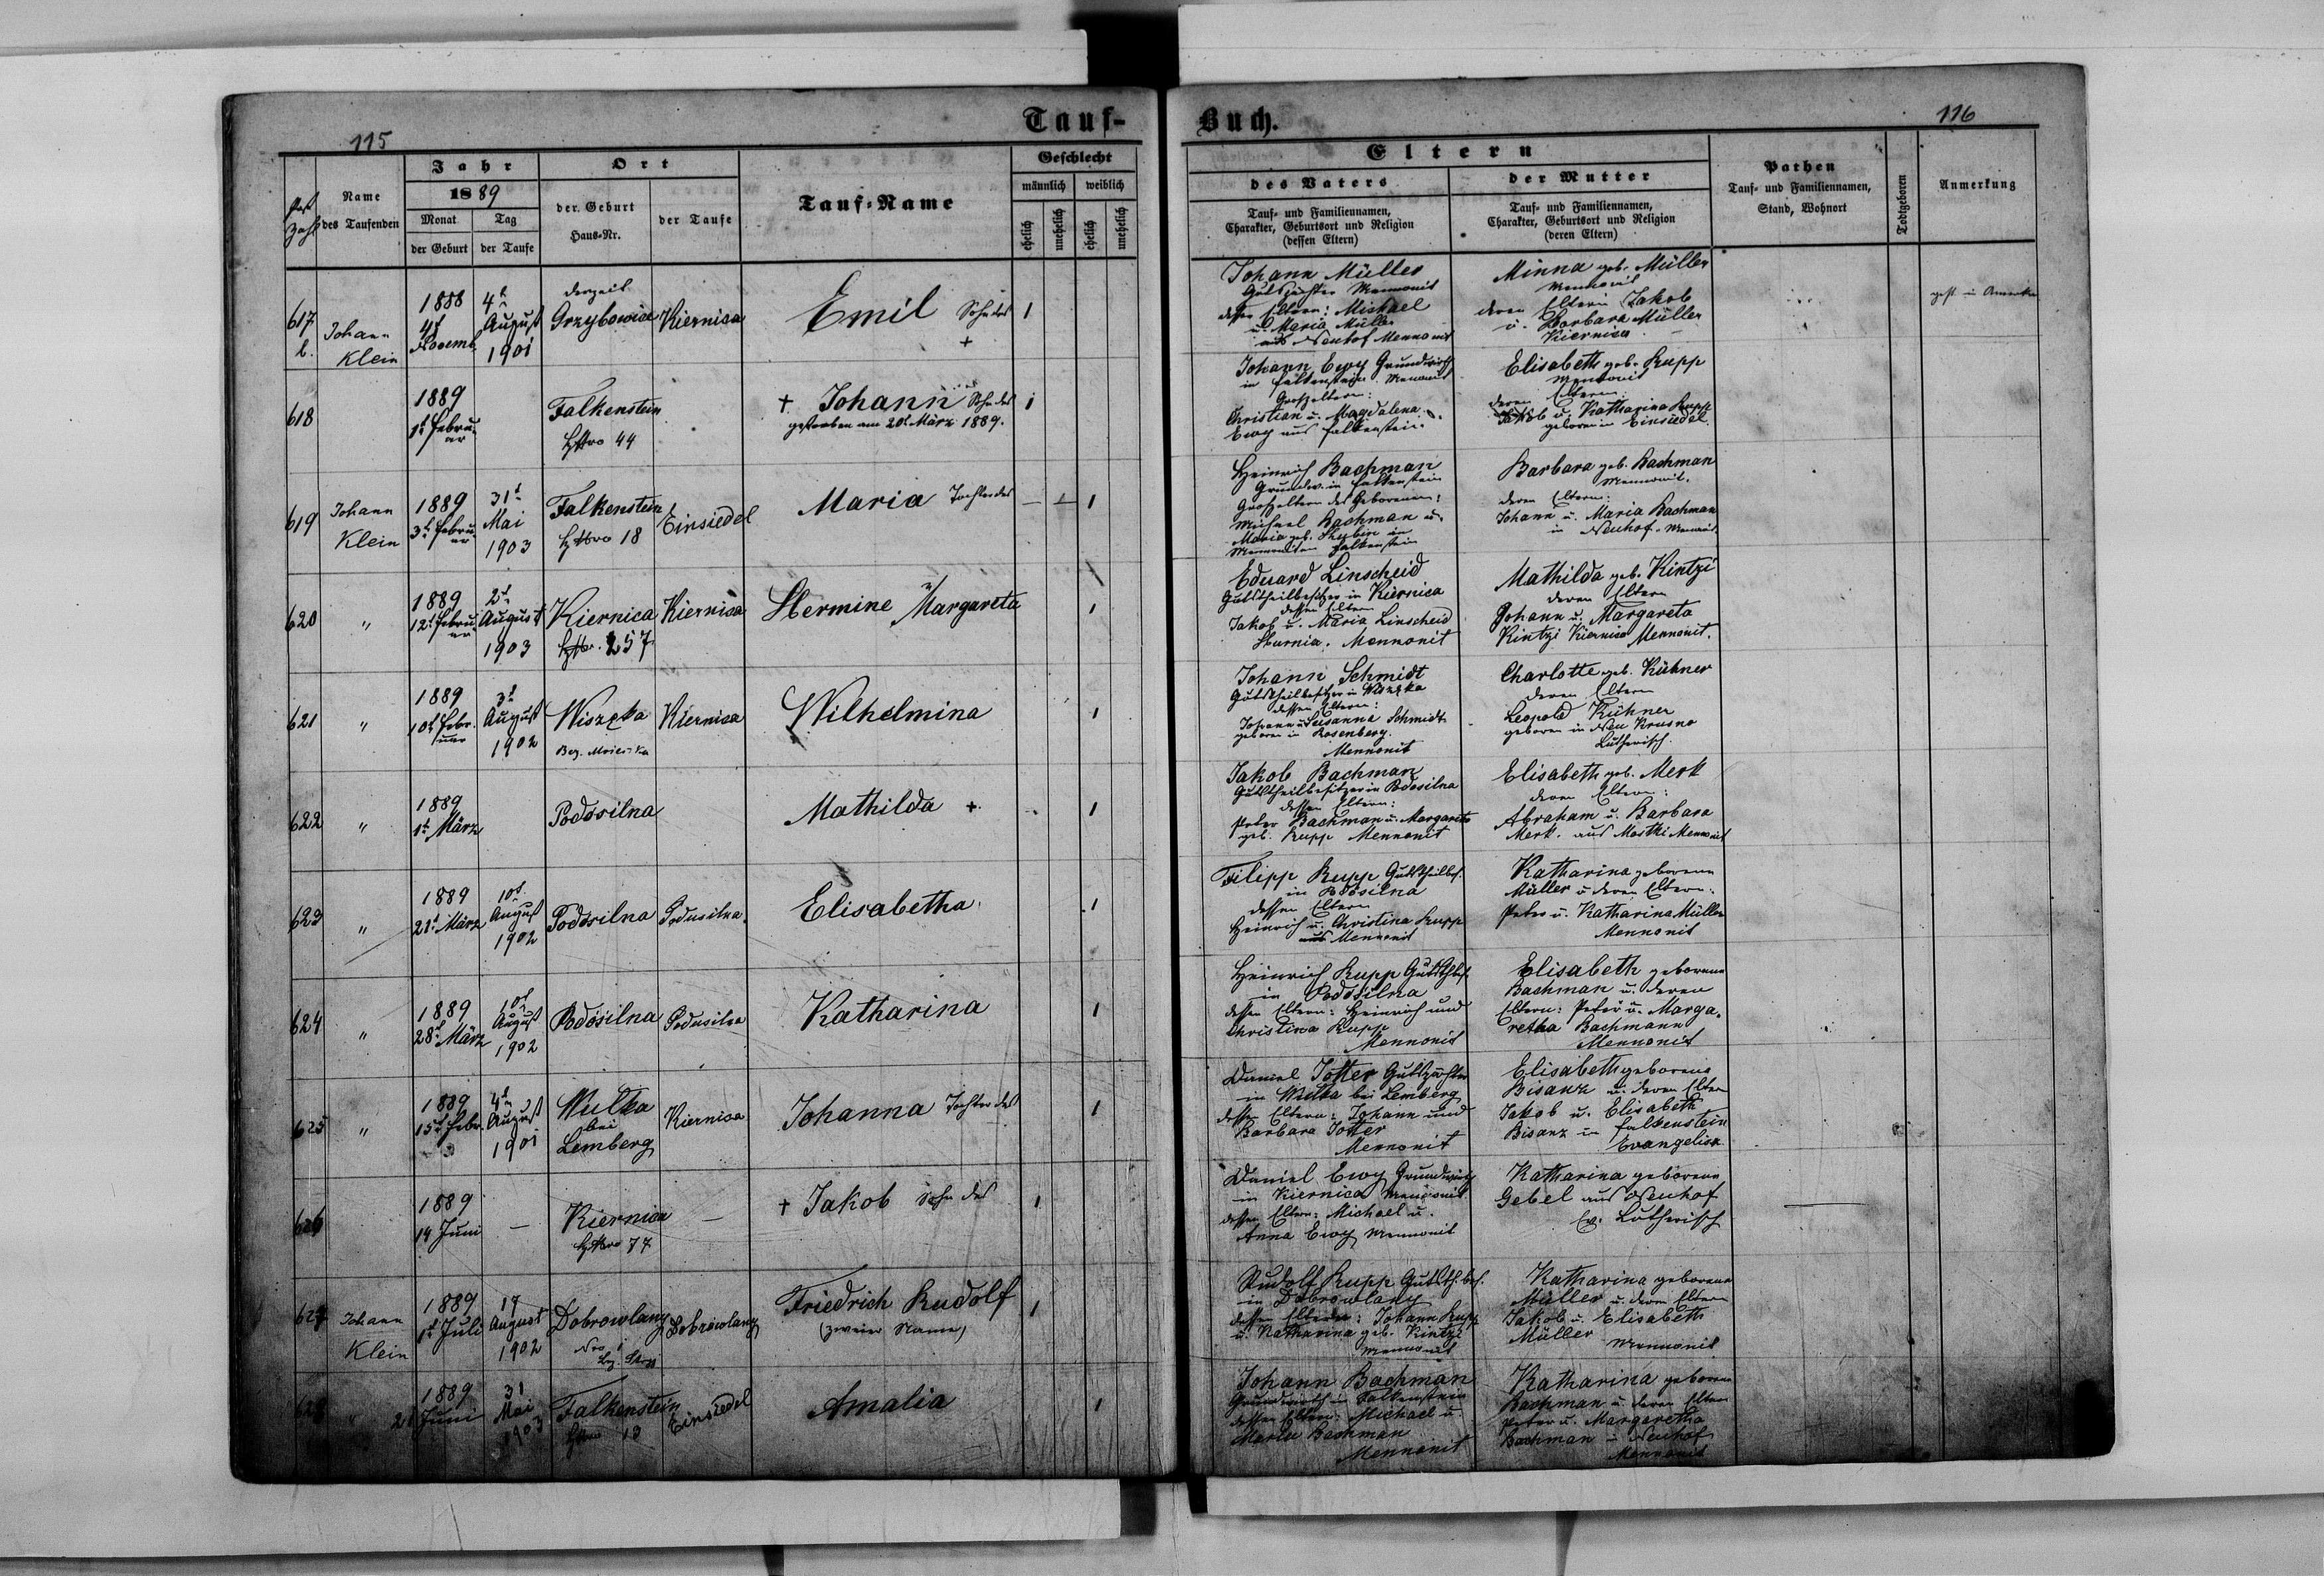 115
Tauf-
Buch.
116
Post Zahl
Name
des Taufenden
Jahr
1889
Monat
der Geburt
Tag
der Taufe
Ort
der Geburt
Haus-Nr.
der Taufe
Tauf-Name
Geschlecht
männlich weiblich
ehelich
unehelich
ehelich
unehelich
Eltern
des Vaters
Tauf- und Familiennamen,
Charakter, Geburtsort und Religion
(dessen Eltern)
der Mutter
Tauf- und Familiennamen,
Charakter, Geburtsort und Religion
(deren Eltern)
Pathen
Tauf- und Familiennamen,
Stand, Wohnort
Todtgeboren
Anmerkung
617
b.
Johann
Klein
1888
4t
Novemb
4t
August
1901
derzeit
Grzybowice
Kiernica
Emil Sohn des
+
1
Johann Müller
Gutspächter Mennonit
dessen Eltern: Michael
u. Maria Müller
aus Neuhof Mennonit
Minna geb. Müller
Mennonit
deren Eltern Jakob
u. Barbara Müller
Kiernica
gest. in Amerika
618
1889
1t Februar
Falkenstein
HNro 44
+ Johann Sohn des
gestorben am 20t März 1889.
1
Johann Ewy Grundwirth
in Falkenstein Mennonit
Großeltern:
Christian u. Magdalena
Ewy aus Falkenstein.
Elisabeth geb. Rupp
Mennonit
deren Eltern:
Jakob u. Katharina Rupp
geboren in Einsiedel.
619
Johann
Klein
1889
3t Februar
31t
Mai
1903
Falkenstein
HNro 18
Einsiedel
Maria Tochter des
1
Heinrich Bachman
Grundw. in Falkenstein
Großeltern des Geborenen:
Michael Bachman u.
Maria geb. in
Mennoniten Falkenstein
Barbara geb. Bachman
Mennonit.
deren Eltern:
Johann u. Maria Bachman
in Neuhof. Mennonit.
620
"
1889
12t Februar
2t
August
1903
Kiernica
HNr. 257
Kiernica
Hermine Margareta
1
Eduard Linscheid
Gutstheilbesitzer in Kiernica
dessen Eltern
Jakob u. Maria Linscheid
Mennonit
Mathilda geb. Kintzi
deren Eltern
Johann u. Margareta
Kintzi Kiernica Mennonit.
621
"
1889
10t Februar
3t
August
1902
Wiszęka
Bez.
Kiernica
Wilhelmina
1
Johann Schmidt
Gutstheilbesitzer in Wiszęka
dessen Eltern:
Johann u. Susanna Schmidt
geboren in Rosenberg.
Mennonit
Charlotte geb. Kühner
deren Eltern
Leopold Kühner
geboren in Neu
Lutherisch.
622
"
1889
1t März
Podósilna
Mathilda +
1
Jakob Bachman
Gutstheilbesitzer in Podosilna
dessen Eltern:
Peter Bachman u. Margareta
geb. Rupp Mennonit
Elisabeth geb. Merk
deren Eltern:
Abraham u. Barbara
Merk. aus Mostki Mennonit
623
"
1889
21t März
10t
August
1902
Podósilna
Podusilna.
Elisabetha
1
Filipp Rupp Gutstheilbes.
in Podósilna
dessen Eltern
Heinrich u. Christina Rupp
aus Mennonit
Katharina geborene
Müller u. deren Eltern:
Peter u. Katharina Müller
Mennonit
624
"
1889
28t März
10t
August
1902
Podósilna
Podusilna
Katharina
1
Heinrich Rupp Gutsthbes.
in Podósilna
dessen Eltern: Heinrich und
Christina Rupp
Mennonit
Elisabeth geborene
Bachman u. deren
Eltern: Peter u. Marga-
retha Bachmann
Mennonit
625
"
1889
15t Febr.
4t
August
1901
Wulka
bei
Lemberg
Kiernica
Johanna Tochter des
1
Daniel Jotter Gutspächter
in Wulka bei Lemberg
dessen Eltern: Johann und
Barbara Jotter
Mennonit
Elisabeth geborene
Bisanz u. deren Eltern
Jakob u. Elisabeth
Bisanz in Falkenstein
Evangelisch
626
1889
14 Juni
—
Kiernica
HNro 77
—
+ Jakob Sohn des
1
Daniel Ewy Grundwirth
in Kiernica Mennonit
dessen Eltern: Michael u.
Anna Ewy Mennonit
Katharina geborene
Gebel aus Neuhof
Ev. Lutherisch
627
Johann
Klein
1889
1t Juli
17
August
1902
Dobrowlany
Nro 1
Bez. Stryj
Dobrowlany
Friedrich Rudolf
(zweier Name)
1
Rudolf Rupp Gutsth. bes.
in Dobrowlany
dessen Eltern: Johann Rupp
u. Katharina geb. Kintzi
Mennonit
Katharina geborene
Müller u. deren Eltern
Jakob u. Elisabeth
Müller Mennonit
628
"
1889
21 Juni
31
Mai
1903
Falkenstein
HNro 13
Einsiedel
Amalia
1
Johann Bachman
Grundwirth in Falkenstein
dessen Eltern: Michael u.
Maria Bachman
Mennonit
Katharina geborene
Bachman u. deren Eltern
Peter u. Margaretha
Bachman in Neuhof
Mennonit